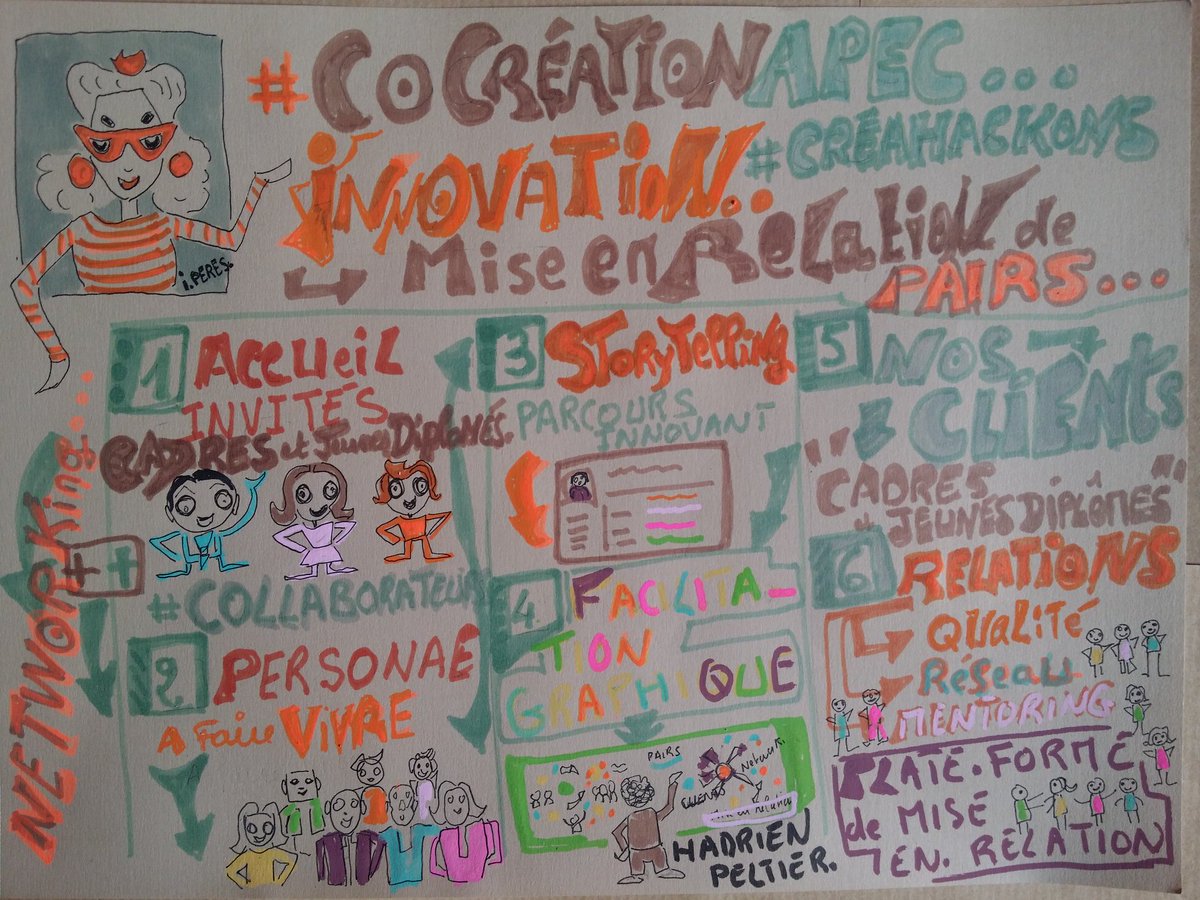 #COCRÉATION APEC...
INNOVATION..
#CRÉAHACKONS
Mise en Relation de
PAIRS...
i.PERES.
NETWORKing...
++
1 ACCUEIL
INVITÉS
CADRES et Jeunes Diplômés.
#COLLABORATEURS
2 PERSONAE
A Faire VIVRE
3 STORYTELLING
PARCOURS
INNOVANT
4. FACILITA-
TION
GRAPHIQUE
PAIRS
Network
CLIENTS
HADRIEN
PELTIER.
5 NOS
CLIENTS
"CADRES
JEUNES DIPLÔMÉS"
6 RELATIONS
QUALITÉ
Réseau
MENTORING
PLATE-FORME
de MISE
EN. RELATION